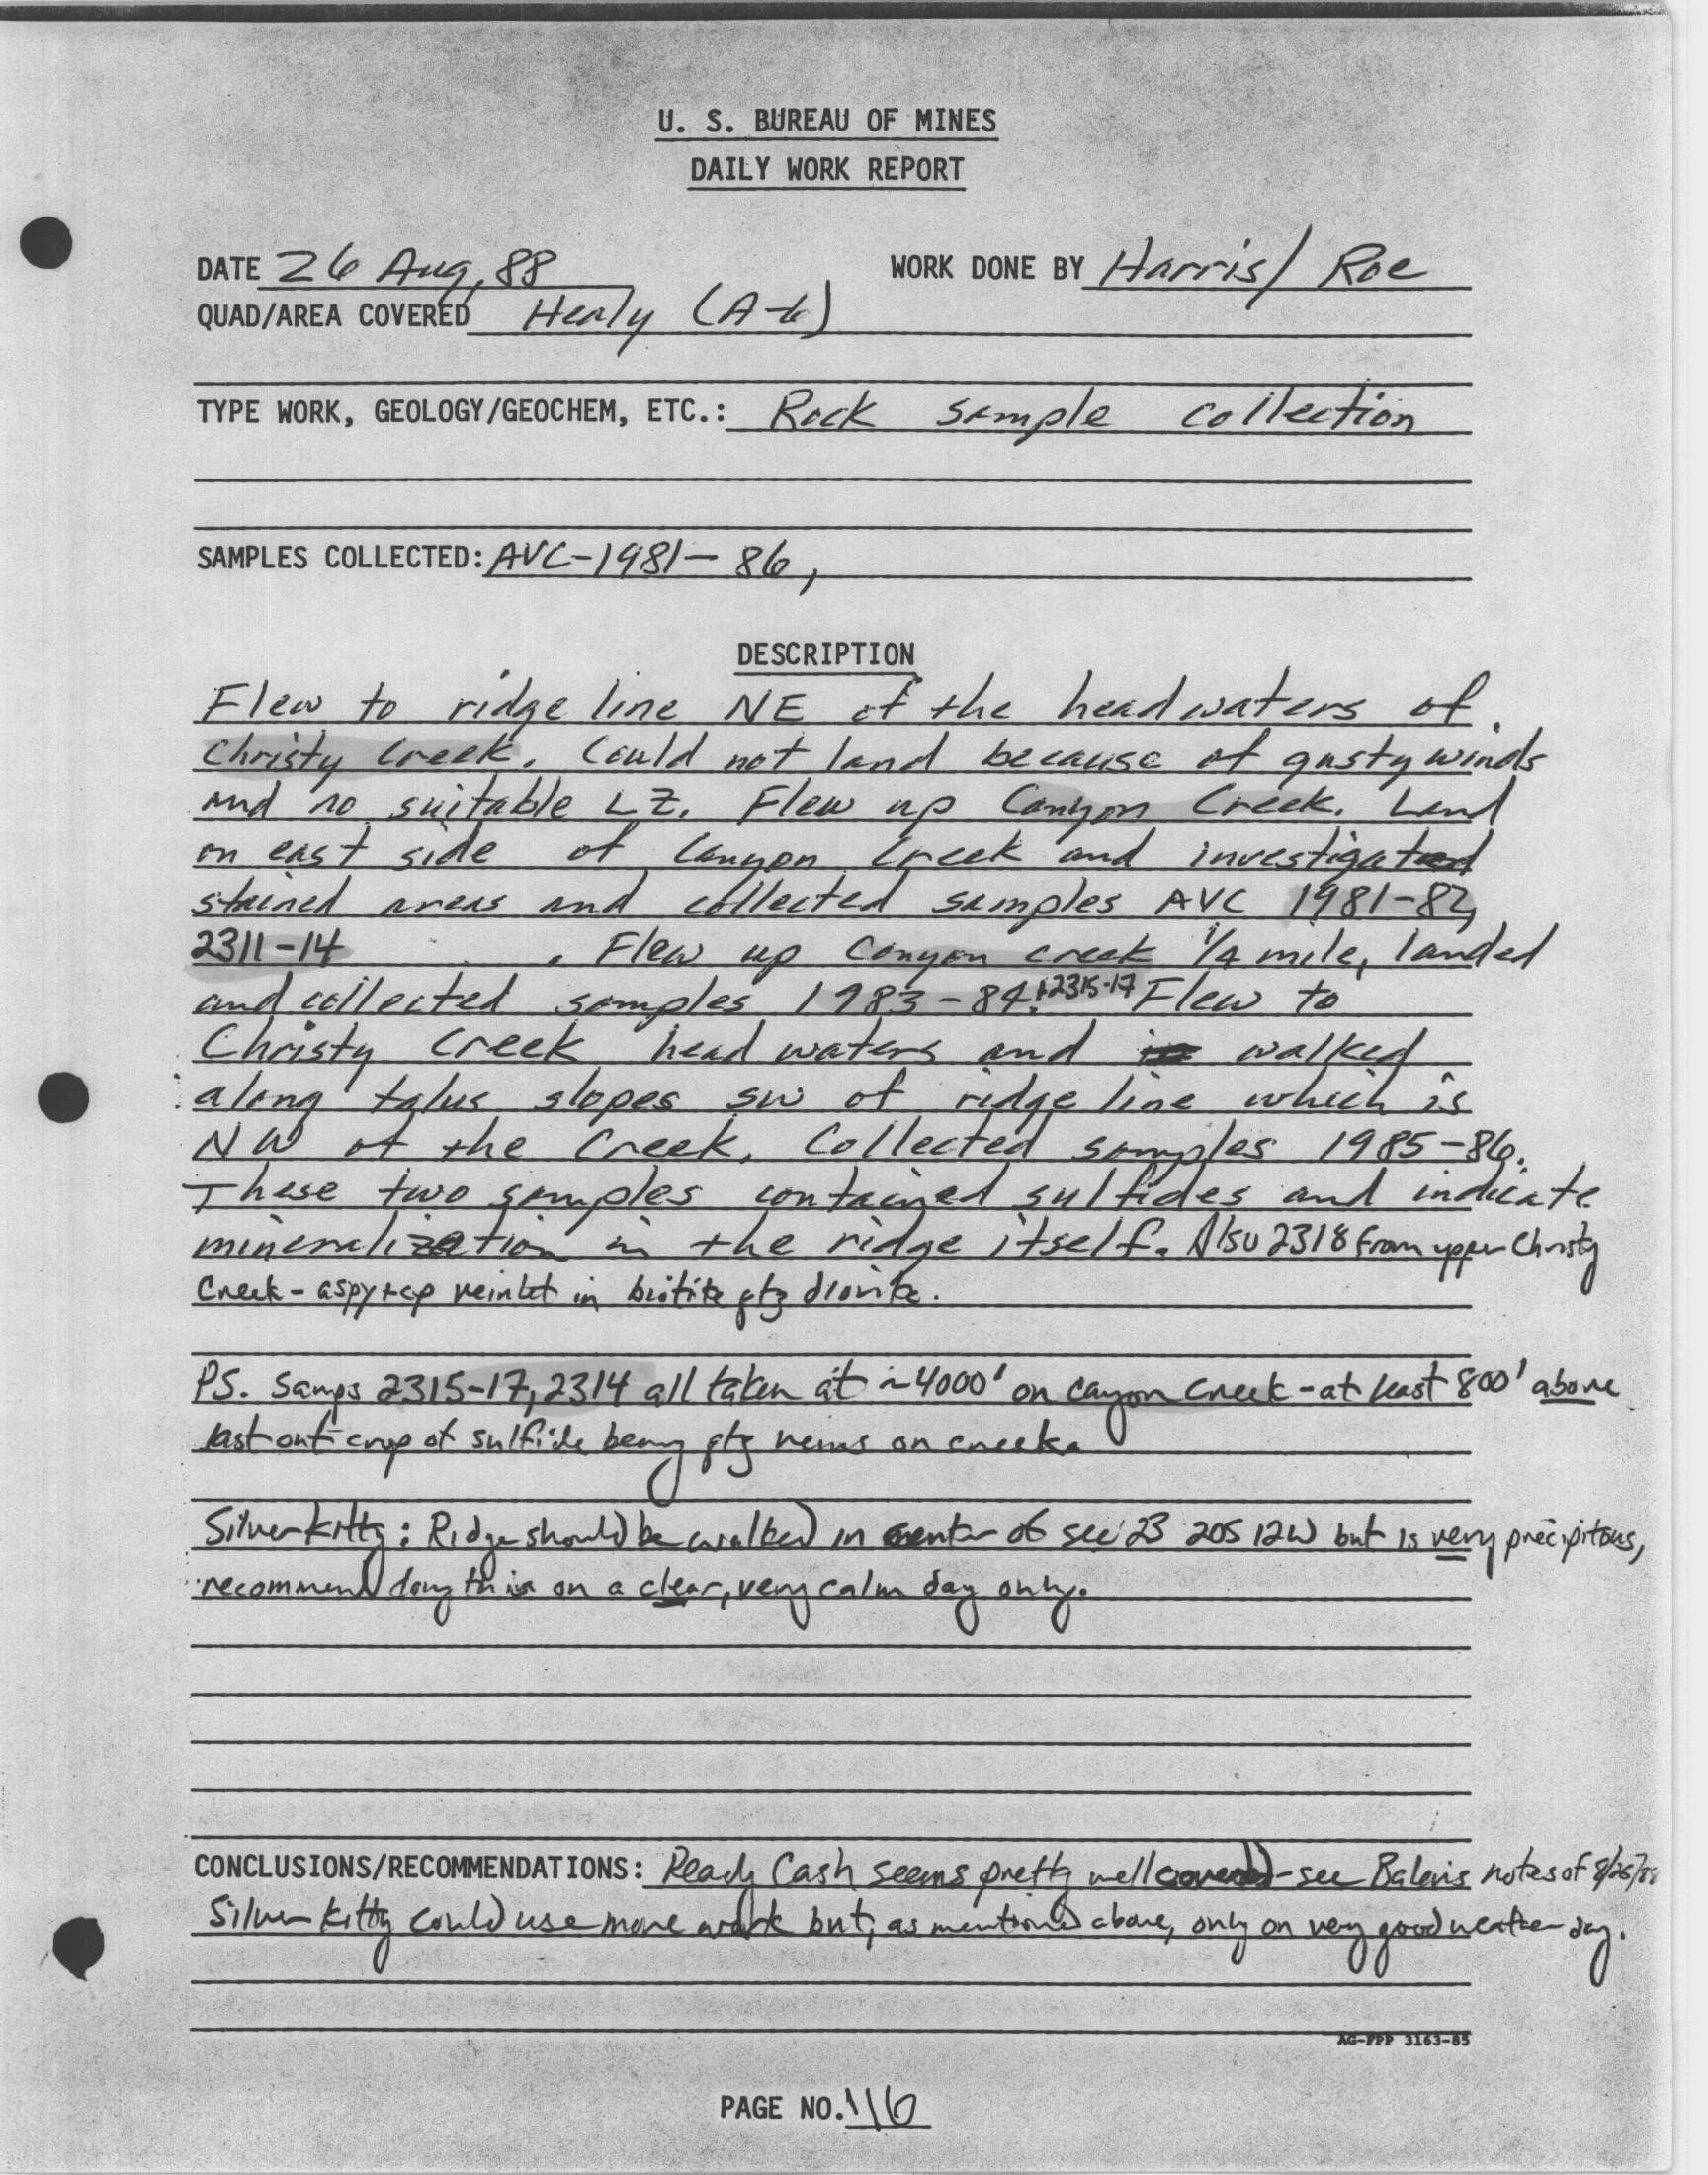 U. S. BUREAU OF MINES
DAILY WORK REPORT
DATE 26 Aug, 88 WORK DONE BY Harris/ Roe
QUAD/AREA COVERED Healy (A-6)
TYPE WORK, GEOLOGY/GEOCHEM, ETC.: Rock sample collection
SAMPLES COLLECTED: AVC-1981-86,
DESCRIPTION
Flew to ridge line NE of the headwaters of
Christy Creek. Could not land because of gusty winds
and no suitable LZ. Flew up Canyon Creek. Land
on east side of Canyon Creek and investigated
stained areas and collected samples AVC 1981-82,
2311-14 . Flew up Canyon creek 1/4 mile, landed
and collected samples 1983-84.+2315-17 Flew to
Christy Creek head waters and walked
along talus slopes SW of ridge line which is
NW of the Creek. Collected samples 1985-86.
These two samples contained sulfides and indicate
mineralization in the ridge itself. Also 2318 from upper Christy
Creek - aspy+cp veinlet in biotite qtz diorite.
PS. Samps 2315-17, 2314 all taken at ~4000' on Canyon Creek - at least 800' above
last out crop of sulfide bearing qtz veins on creek.
Silver Kitty: Ridge should be walked in center of sec 23 20S 12W but is very precipitous,
recommend doing this on a clear, very calm day only.
CONCLUSIONS/RECOMMENDATIONS: Ready Cash seems pretty well covered - see Balen's notes of 8/26/88
Silver Kitty could use more work but, as mentioned above, only on very good weather day.
AG-FPP 3163-85
PAGE NO. 116